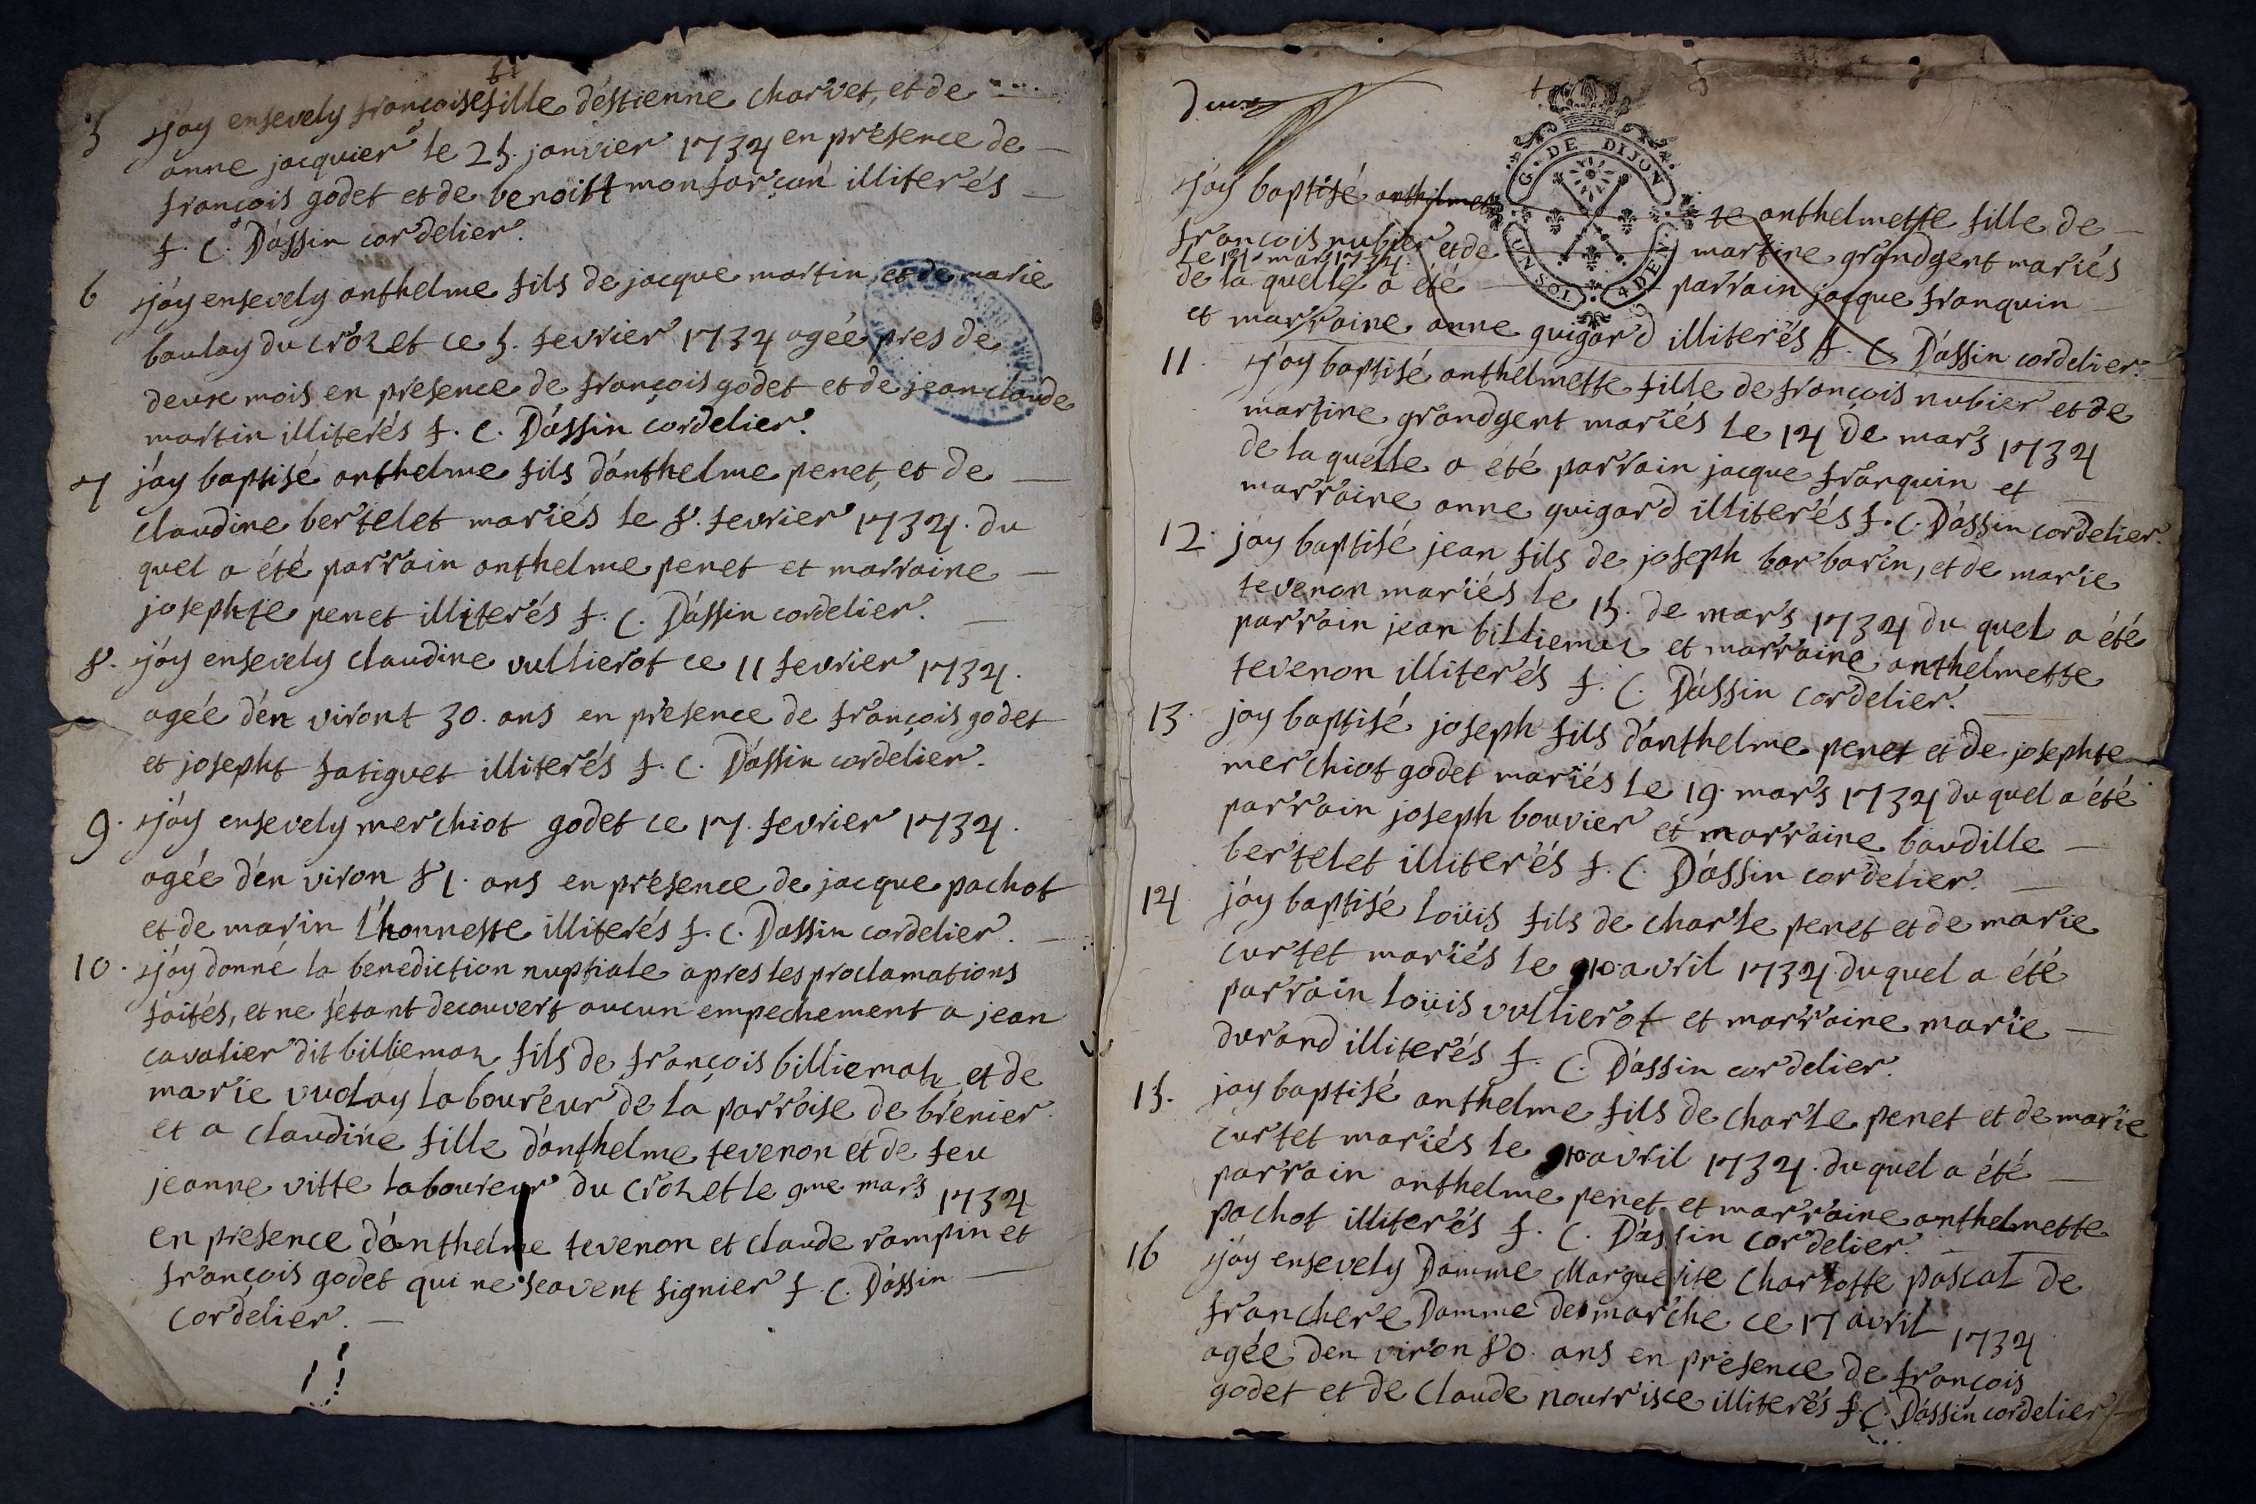 5 j'ay ensevely françoise fille d'éstienne charvet, et de
anne jacquier le 25. janvier 1734 en présence de
françois godet et de benoist monfarçon illiterés
f. C. D'assin cordelier.
6 j'ay ensevely anthelme fils de jacque martin et de marie
boulay du crozet ce 5. fevrier 1734 agée pres de
deux mois en presence de françois godet et de jean claude
martin illiterés f. C. D'assin cordelier.
7 j'ay baptisé anthelme fils d'anthelme penet, et de
claudine bertelet mariés le 8. fevrier 1734. du
quel a été parrain anthelme penet et marraine
josephte penet illiterés f. C. D'assin cordelier.
8. j'ay ensevely claudine vullierot ce 11 fevrier 1734.
agée d'en viront 30. ans en présence de françois godet
et josepht fatiguet illiterés f. C. D'assin cordelier.
9. j'ay ensevely merchiot godet ce 17. fevrier 1734.
agée d'en viron 81. ans en présence de jacque pachot
et de marin l'honneste illiterés f. C. Dassin cordelier.
10. j'ay donné la benediction nuptiale apres les proclamations
faités, et ne s'étant decouvert aucun empechement a jean
cavalier dit billiemaz fils de françois billiemaz et de
marie vuday laboureur de la parroise de brénier
et a claudine fille d'anthelme tevenon et de feu
jeanne vitte laboureur du crozet le 9me mars 1734
en présence d'anthelme tevenon et claude rampin et
françois godet qui ne scavent signier f. C. D'assin
cordelier.
deux
G. DE DIJON
4 DEN.
j'ay baptisé anthelmet te anthelmette fille de
françois nubier et de martine grandgent mariés
le 14 mars 1734.
de la quelle a été parrain jacque franquin
et marraine anne guigard illiterés f. C. D'assin cordelier.
11. j'ay baptisé anthelmette fille de françois nubier et de
martine grandgent mariés le 14 de mars 1734
de la quelle a été parrain jacque franquin et
marraine anne guigard illiterés f. C. D'assin cordelier.
12. j'ay baptisé jean fils de joseph barbarin, et de marie
tevenon mariés le 15. de mars 1734 du quel a été
parrain jean billiemaz et marraine anthelmette
tevenon illiterés f. C. D'assin cordelier.
13. j'ay baptisé joseph fils d'anthelme penet et de josephte
merchiot godet mariés le 19. mars 1734 du quel a été
parrain joseph bouvier et marraine baudille
bertelet illiterés f. C. D'assin cordélier.
14 j'ay baptisé Loüis fils de charle penet et de marie
curtet mariés le 10 avril 1734. du quel a été
parrain Loüis vullierot et marraine marie
durand illiterés f. C. D'assin cordelier.
15. j'ay baptisé anthelme fils de charle penet et de marie
curtet mariés le 10 avril 1734. du quel a été
parrain anthelme penet et marraine anthelmette
pachot illiterés f. C. D'assin cordelier.
16 j'ay ensevely Damme Marguerite Charlotte pascal de
franchere Damme de marche ce 17 avril 1734
agée d'en viron 80. ans en présence de françois
godet et de claude nourrisce illiterés f. C. D'assin cordelier